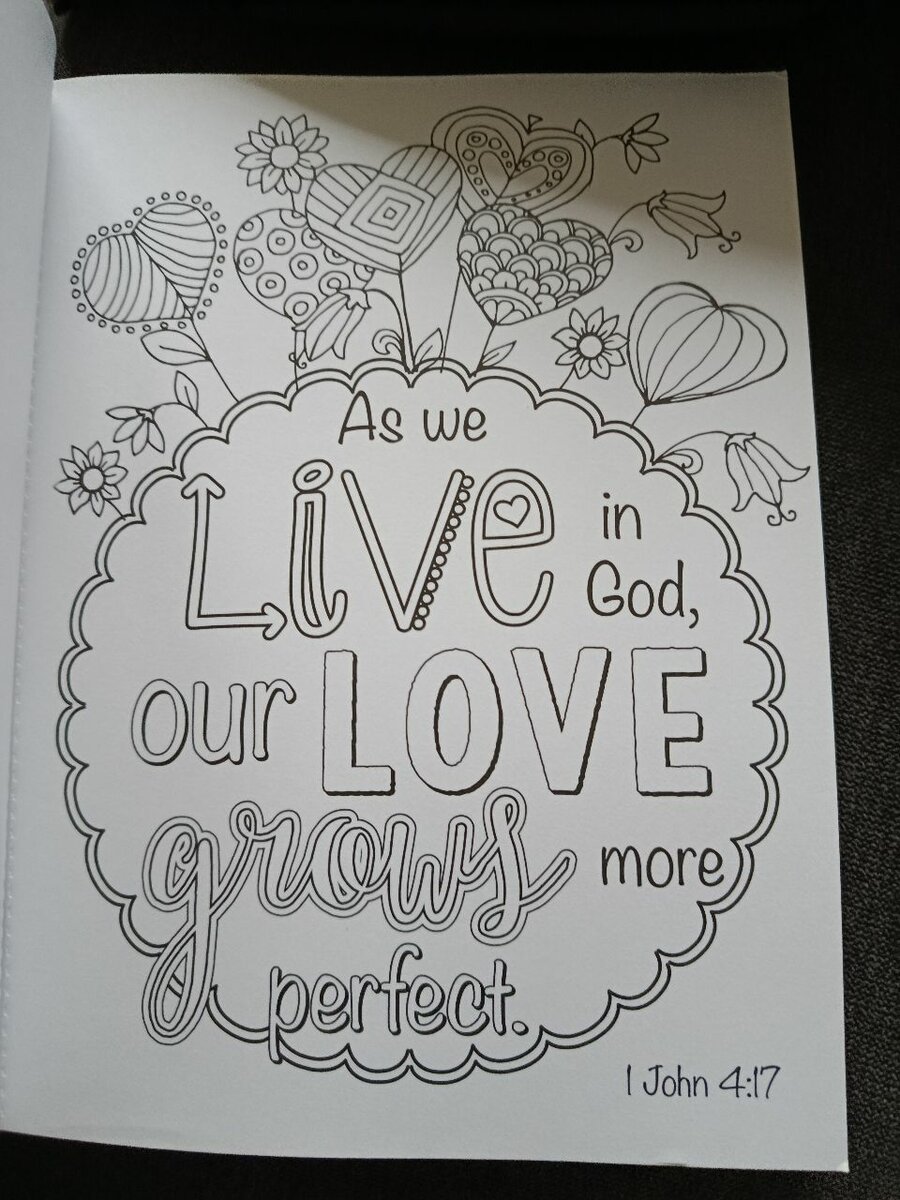 As we
Live in
God,
our LOVE
grows more
perfect.
1 John 4:17